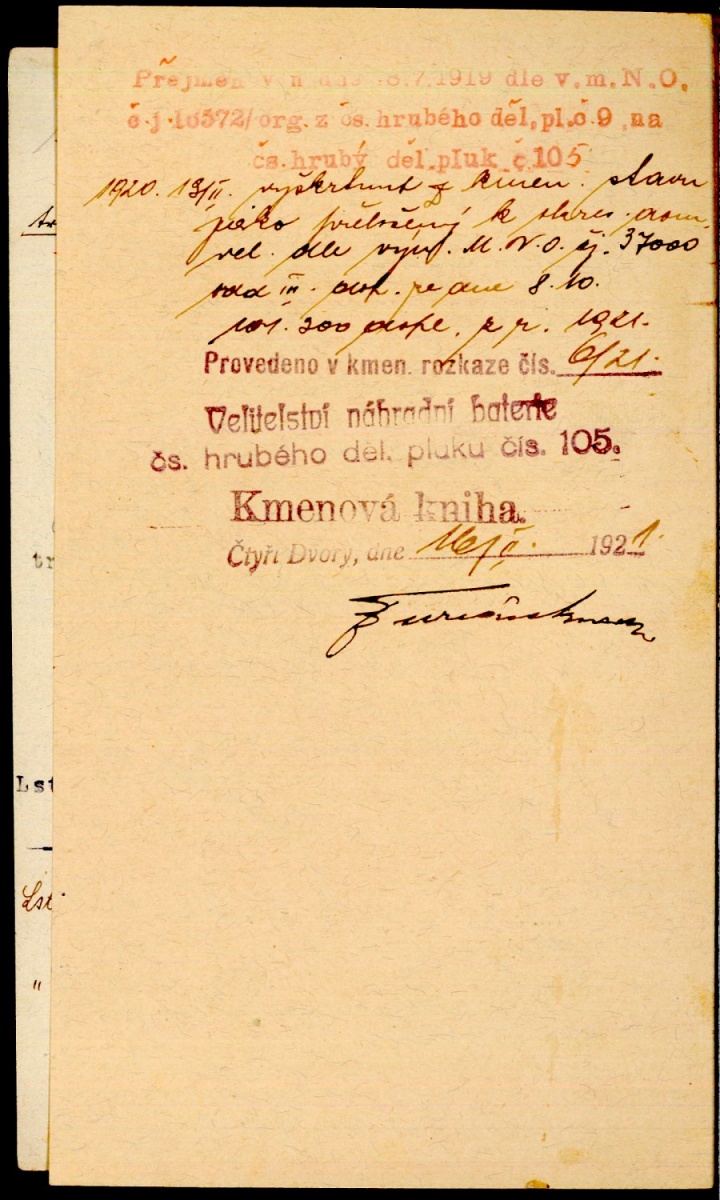 Přejmen dne 8.7.1919 dle v.m.N.O.
č.j.16572/org.z čs.hrubého děl.pl.č.9 na
čs.hrubý děl.pluk č.105
1920. 13/II. vyškrtnut z kmen. stavu
jako přeložený k okres. dom.
vel. dle výn. M.N.O. čj. 37000
odd III. dopl. ze dne 8.10.
z r. 1921.
Provedeno v kmen. rozkaze čís. 6/21.
Velitelství náhradní baterie
čs. hrubého děl. pluku čís. 105.
Kmenová kniha.
Čtyři Dvory, dne 16/II. 1921.
tr
Lst
Lst.
"